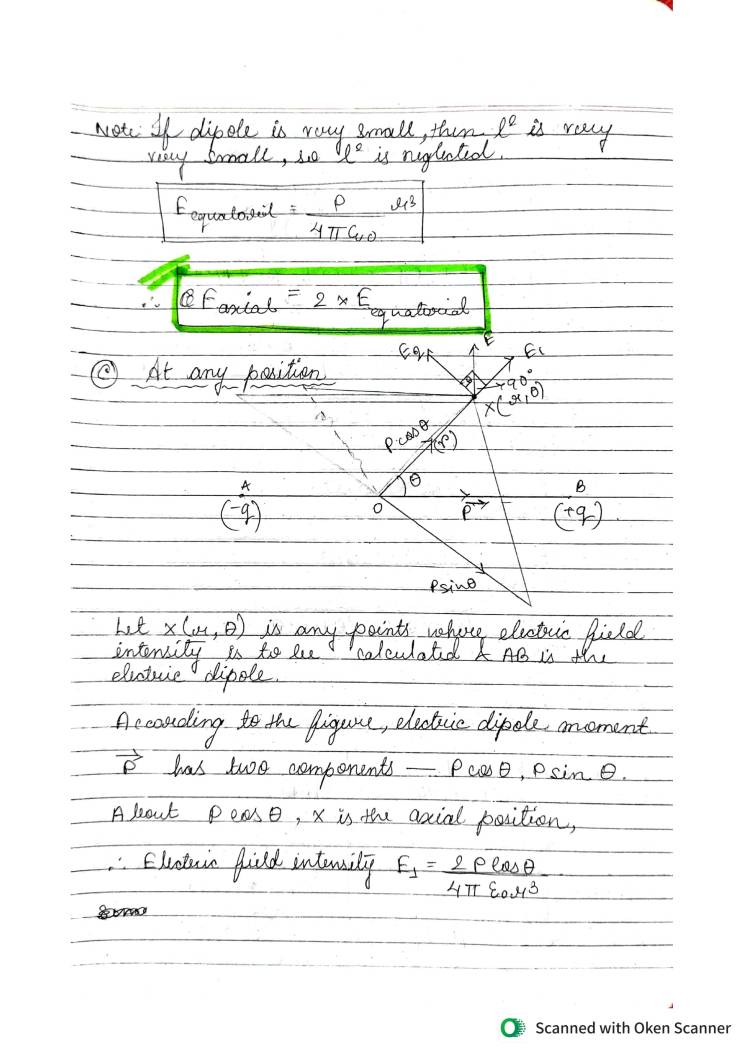 Note If dipole is very small, then l² is very
very small, so l² is neglected.
E equatorial = P / 4πε₀ r³
∴ E axial = 2 × E equatorial
(C) At any position
E₂ E E₁
90°
X(r,θ)
P cosθ (r)
θ
A B
(-q) O P (+q)
P sinθ
Let X(r, θ) is any points where electric field
intensity is to be calculated & AB is the
electric dipole.
According to the figure, electric dipole moment
P has two components — P cos θ, P sin θ.
About P cos θ, X is the axial position,
∴ Electric field intensity E₁ = 2 P cosθ / 4π ε₀ r³
Scanned with Oken Scanner